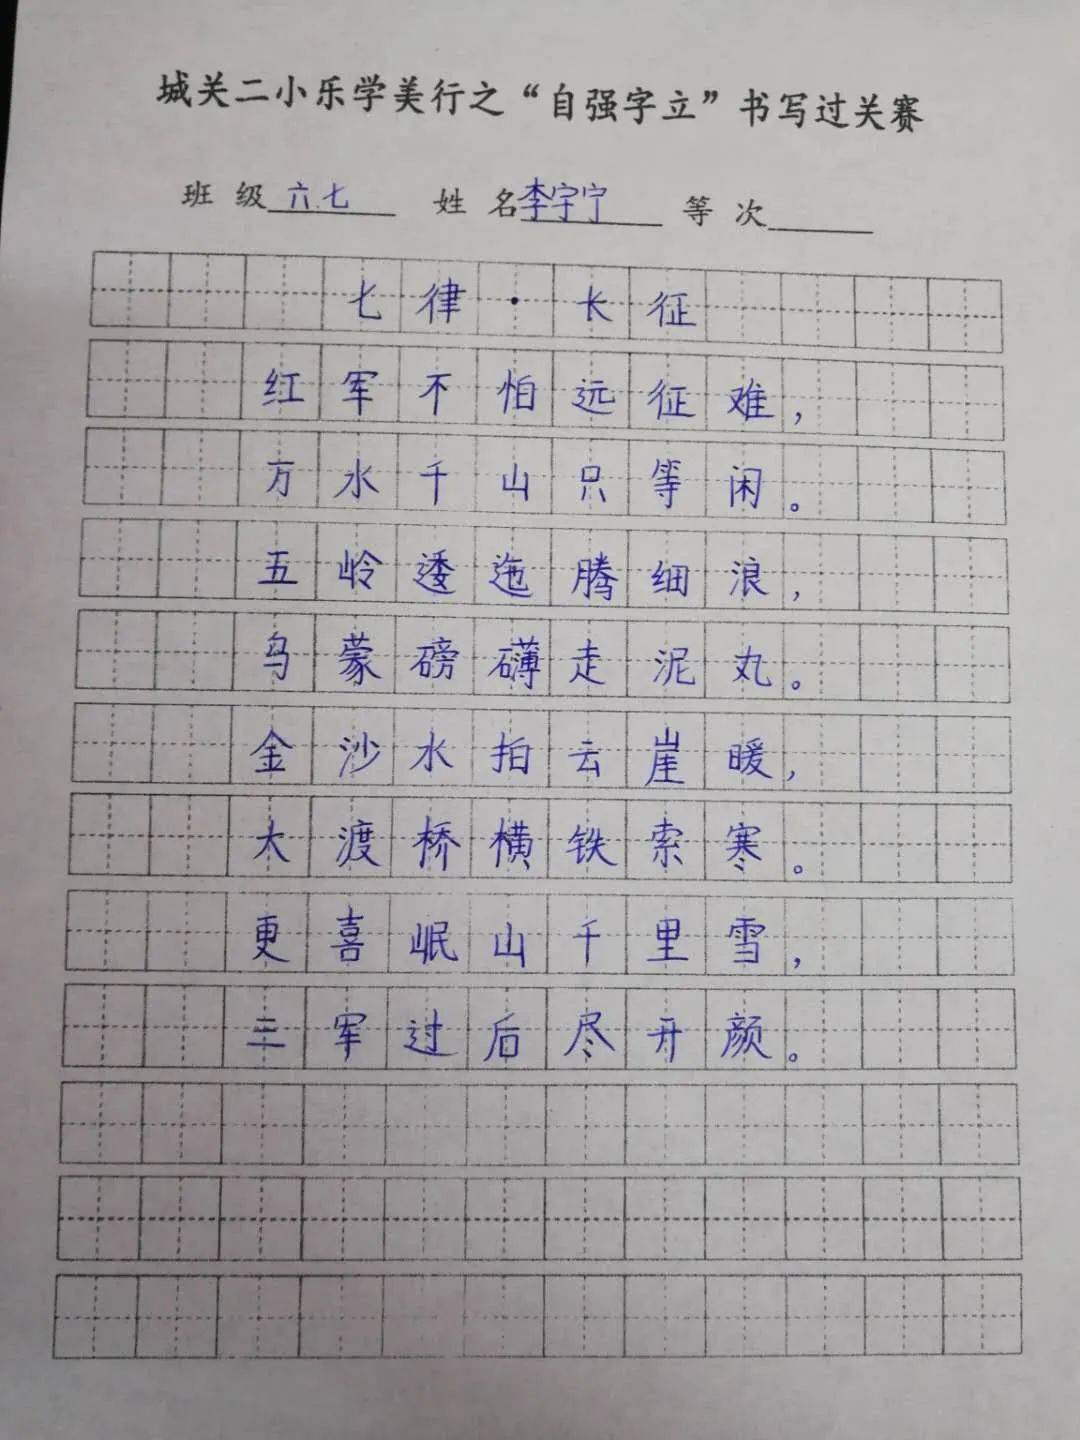 城关二小乐学美行之“自强字立”书写过关赛
班 级六.七 姓 名李宇宁 等 次
七律·长征
红军不怕远征难，
万水千山只等闲。
五岭逶迤腾细浪，
乌蒙磅礴走泥丸。
金沙水拍云崖暖，
大渡桥横铁索寒。
更喜岷山千里雪，
三军过后尽开颜。